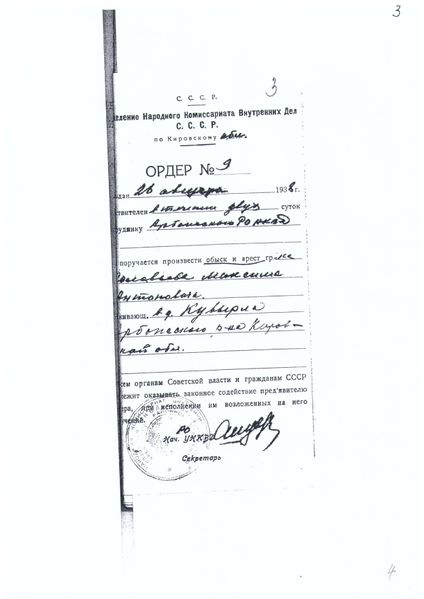 3
3
С. С. С. Р.
вление Народного Комиссариата Внутренних Дел
С. С. С. Р.
по Кировскому обл.
ОРДЕР № 9
дан 26 августа 1938 г.
ствителен в течении двух суток
руднику Арбажского
поручается произвести обыск и арест гр-на
Максима
Антоновича.
живающ. в д. Кувырла
Арбажского р-на Киров-
ской обл.
сем органам Советской власти и гражданам СССР
лежит оказывать законное содействие пред'явителю
ера, при исполнении им возложенных на него
учений.
РО
Нач. УНКВД
Секретарь
4